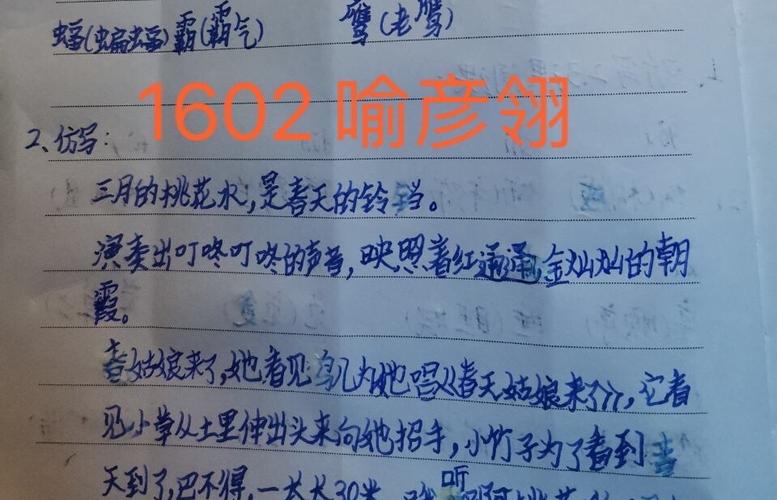 蝠(蝙蝠)霸(霸气) 鹰(老鹰)
1602 喻彦翎
2、仿写:
三月的桃花水,是春天的铃铛。
演奏出叮咚叮咚的声音,映照着红通通,金灿灿的朝
霞。
春姑娘来了,她看见鸟儿为她唱《春天姑娘来了》,它看
见小草从土里伸出头来向她招手,小竹子为了看到春
天到了,巴不得,一天长30米
听